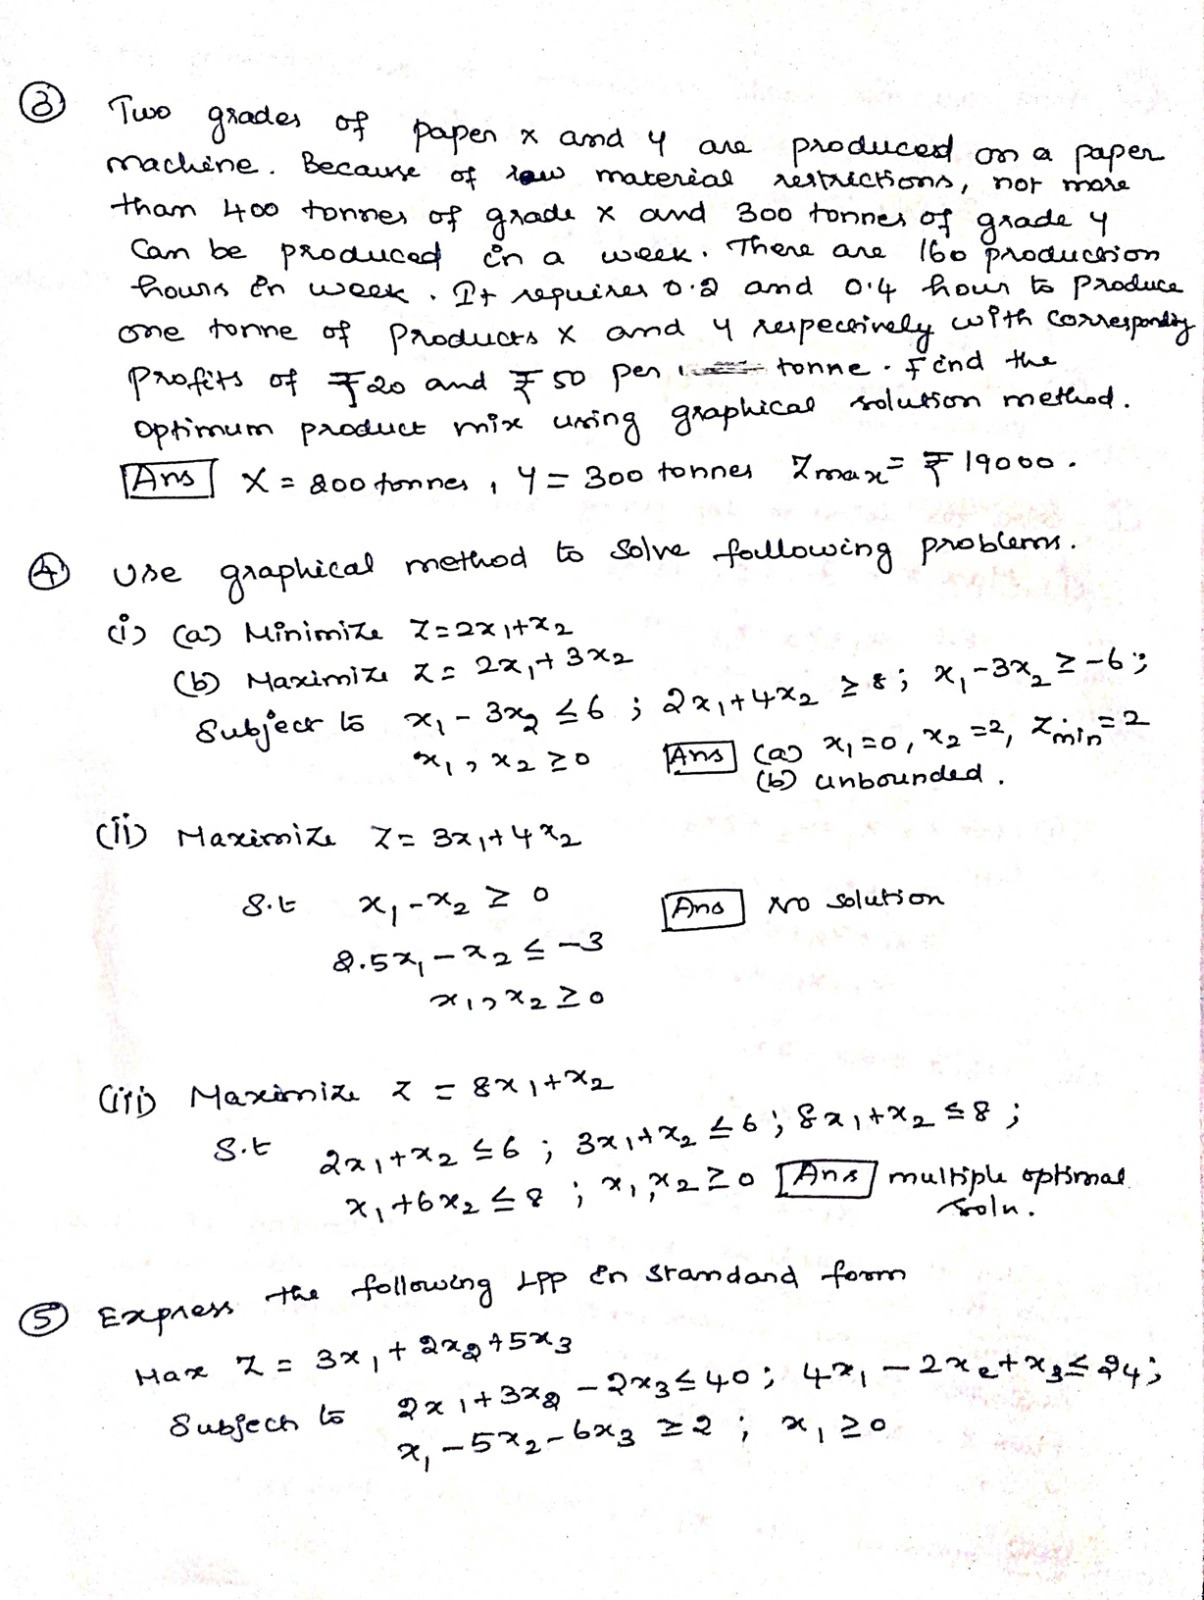 ③ Two grades of paper x and y are produced on a paper
machine. Because of raw material restrictions, not more
than 400 tonnes of grade x and 300 tonnes of grade y
can be produced in a week. There are 160 production
hours in week. It requires 0.2 and 0.4 hour to produce
one tonne of products x and y respectively with corresponding
profits of ₹20 and ₹50 per tonne. Find the
optimum product mix using graphical solution method.
Ans X = 200 tonnes, Y = 300 tonnes Zmax = ₹19000.
④ Use graphical method to solve following problems.
(i) (a) Minimize Z=2x₁+x₂
(b) Maximize Z = 2x₁+3x₂
Subject to x₁ - 3x₂ ≤ 6 ; 2x₁+4x₂ ≥ 8 ; x₁-3x₂ ≥ -6 ;
x₁, x₂ ≥ 0 Ans (a) x₁=0, x₂=2, Zmin=2
(b) unbounded.
(ii) Maximize Z = 3x₁+4x₂
S.t x₁-x₂ ≥ 0 Ans No solution
2.5x₁-x₂ ≤ -3
x₁, x₂ ≥ 0
(iii) Maximize Z = 8x₁+x₂
S.t 2x₁+x₂ ≤ 6 ; 3x₁+x₂ ≤ 6 ; 8x₁+x₂ ≤ 8 ;
x₁+6x₂ ≤ 8 ; x₁, x₂ ≥ 0 Ans multiple optimal
soln.
⑤ Express the following LPP in standard form
Max Z = 3x₁+2x₂+5x₃
Subject to 2x₁+3x₂-2x₃ ≤ 40 ; 4x₁-2x₂+x₃ ≤ 24 ;
x₁-5x₂-6x₃ ≥ 2 ; x₁ ≥ 0